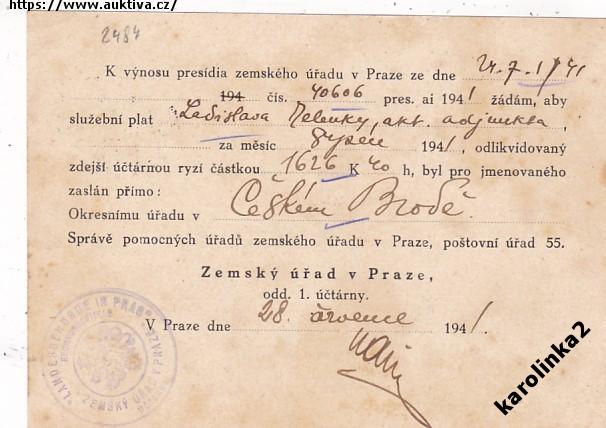 https://www.auktiva.cz/
2484
K výnosu presídia zemského úřadu v Praze ze dne 24.7.1941
194 čís. 40606 pres. ai 1941 žádám, aby
služební plat Ladislava Zelenky, akt. adjunkta,
za měsíc srpen 1941, odlikvidovaný
zdejší účtárnou ryzí částkou 1626 K 40 h, byl pro jmenovaného
zaslán přímo:
Okresnímu úřadu v Českém Brodě.
Správě pomocných úřadů zemského úřadu v Praze, poštovní úřad 55.
Zemský úřad v Praze,
odd. 1. účtárny.
V Praze dne 28. července 1941.
LANDESBEHÖRDE IN PRAG
ZEMSKÝ ÚŘAD V PRAZE
karolinka2